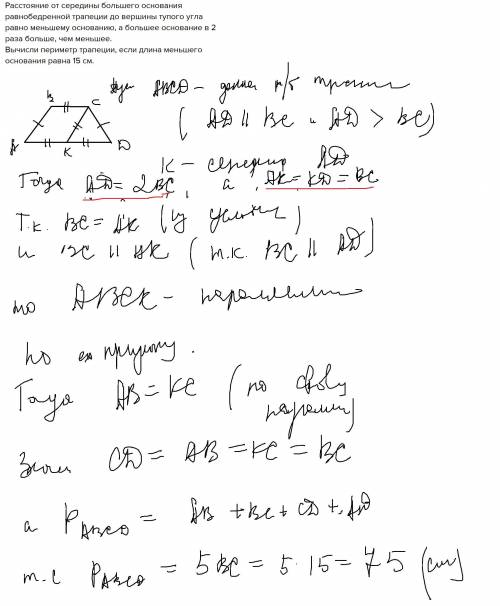 Расстояние от середины большего основания
равнобедренной трапеции до вершины тупого угла
равно меньшему основанию, а большее основание в 2
раза больше, чем меньшее.
Вычисли периметр трапеции, если длина меньшего
основания равна 15 см.
ABCD - р/б
B C
( AD || BC и AD > BC)
A K D
K - середина AD
Тогда AD = 2BC, а AK = KD = BC
Т.к. BC = AK (из условия)
и BC || AK ( т.к. BC || AD)
то ABCK -
по признаку.
Тогда AB = KC ( по св-ву
Значит CD = AB = KC = BC
а P ABCD = AB + BC + CD + AD
т.е P ABCD = 5BC = 5·15 = 75 (см)